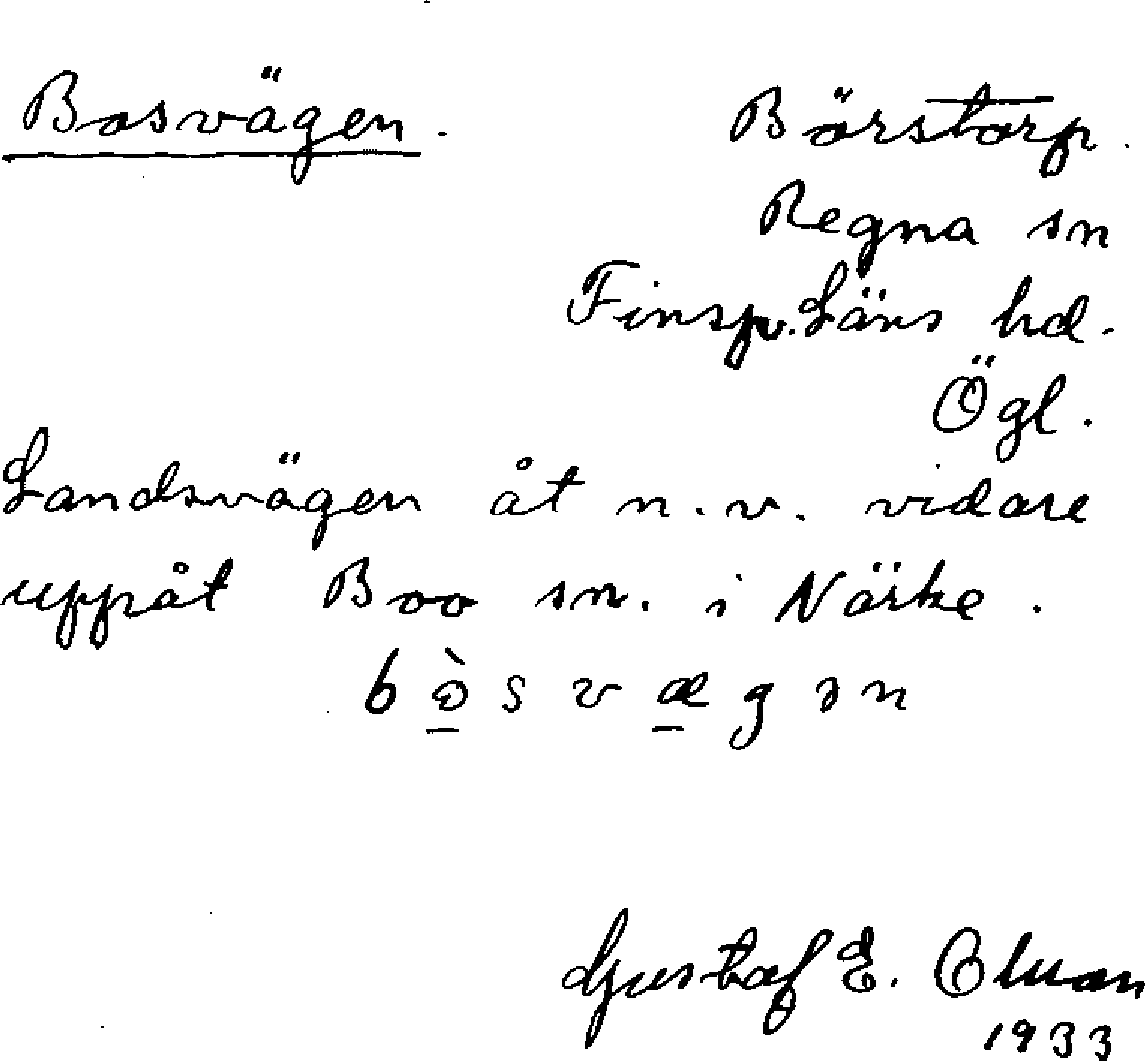 Bosvägen. Börstorp.
Regna sn
Finsp. Läns hd.
Ögl.
Landsvägen åt n.v. vidare
uppåt Boo sn. i Närke.
Gustaf E.
1933